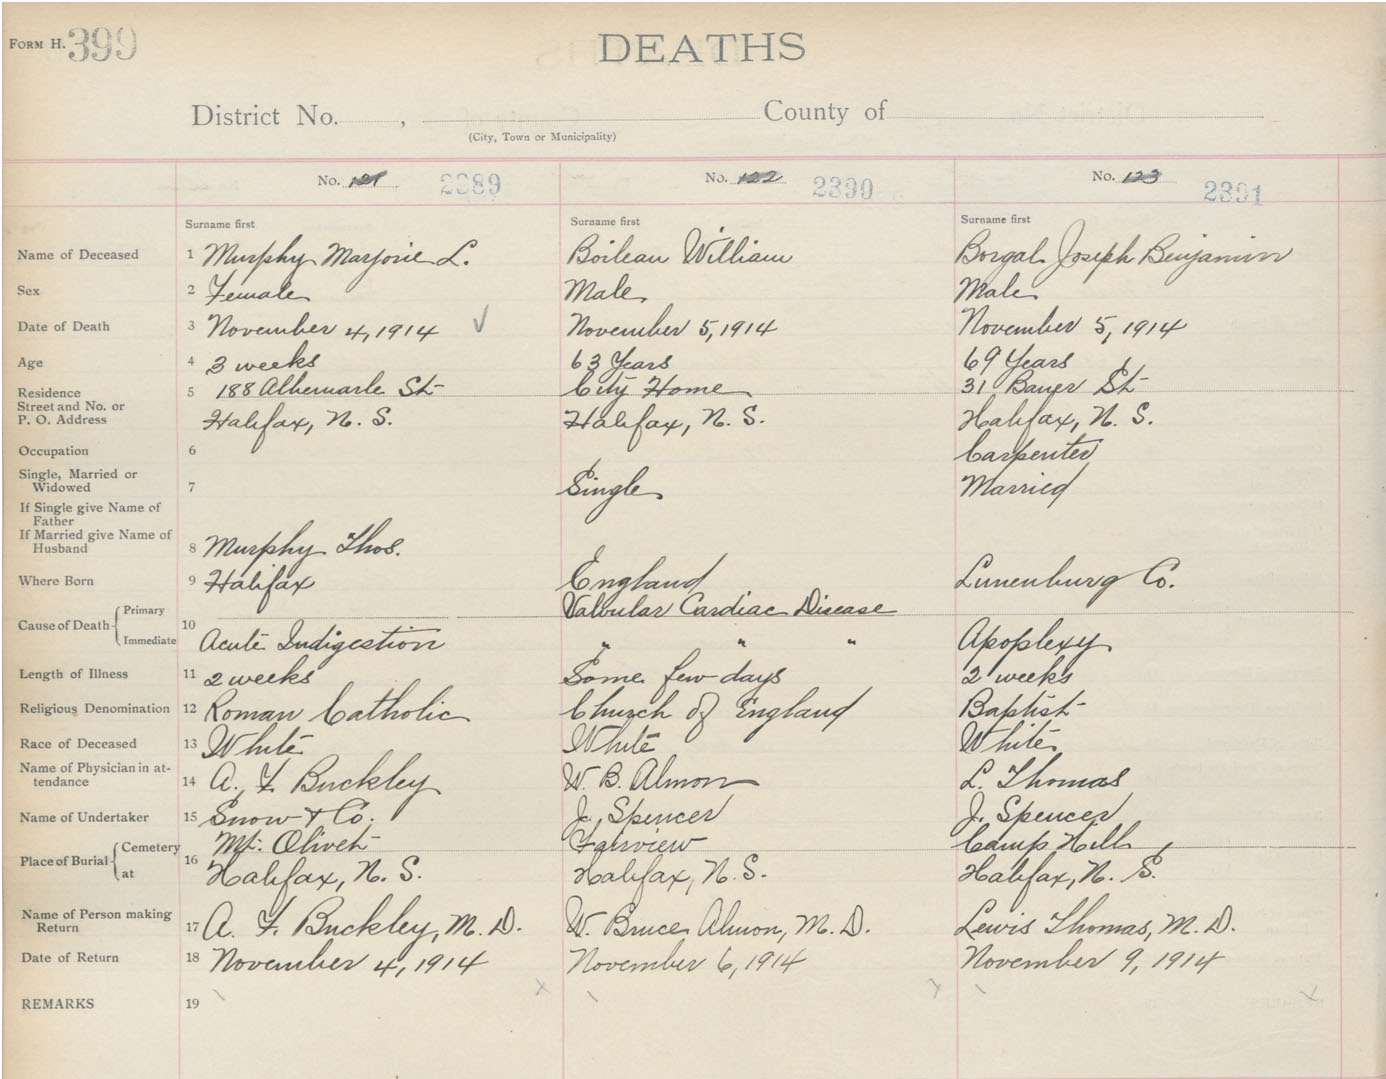 FORM H. 399
DEATHS
District No. , County of
(City, Town or Municipality)
No. 121 2389 No. 122 2390 No. 123 2391
Surname first Surname first Surname first
Name of Deceased 1 Murphy Marjorie L. Boileau William Borgal Joseph Benjamin
Sex 2 Female Male Male
Date of Death 3 November 4, 1914 November 5, 1914 November 5, 1914
Age 4 3 weeks 63 Years 69 Years
Residence 5 188 Albemarle St City Home 31 Bauer St
Street and No. or
P. O. Address Halifax, N. S. Halifax, N. S. Halifax, N. S.
Occupation 6 Carpenter
Single, Married or
Widowed 7 Single Married
If Single give Name of
Father
If Married give Name of
Husband 8 Murphy Thos.
Where Born 9 Halifax England Lunenburg Co.
Cause of Death Primary 10 Valvular Cardiac Disease
Immediate Acute Indigestion " " " Apoplexy
Length of Illness 11 2 weeks Some few days 2 weeks
Religious Denomination 12 Roman Catholic Church of England Baptist
Race of Deceased 13 White White White
Name of Physician in at-
tendance 14 A. F. Buckley W. B. Almon L. Thomas
Name of Undertaker 15 Snow & Co. J. Spencer J. Spencer
Place of Burial Cemetery 16 Mt. Olivet Fairview Camp Hill
at Halifax, N. S. Halifax, N. S. Halifax, N. S.
Name of Person making
Return 17 A. F. Buckley, M. D. W. Bruce Almon, M. D. Lewis Thomas, M. D.
Date of Return 18 November 4, 1914 November 6, 1914 November 9, 1914
REMARKS 19